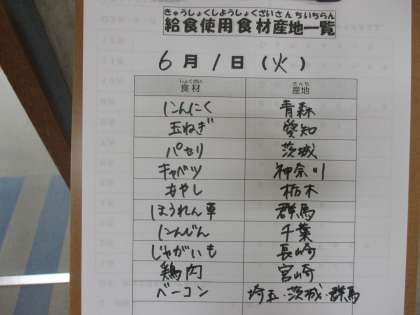 きゅうしょくしようしょくざいさんちいちらん
給食使用食材産地一覧
6月1日(火)
しょくざい さんち
食材 産地
にんにく 青森
玉ねぎ 愛知
パセリ 茨城
キャベツ 神奈川
もやし 栃木
ほうれん草 群馬
にんじん 千葉
じゃがいも 長崎
鶏肉 宮崎
ベーコン 埼玉・茨城・群馬